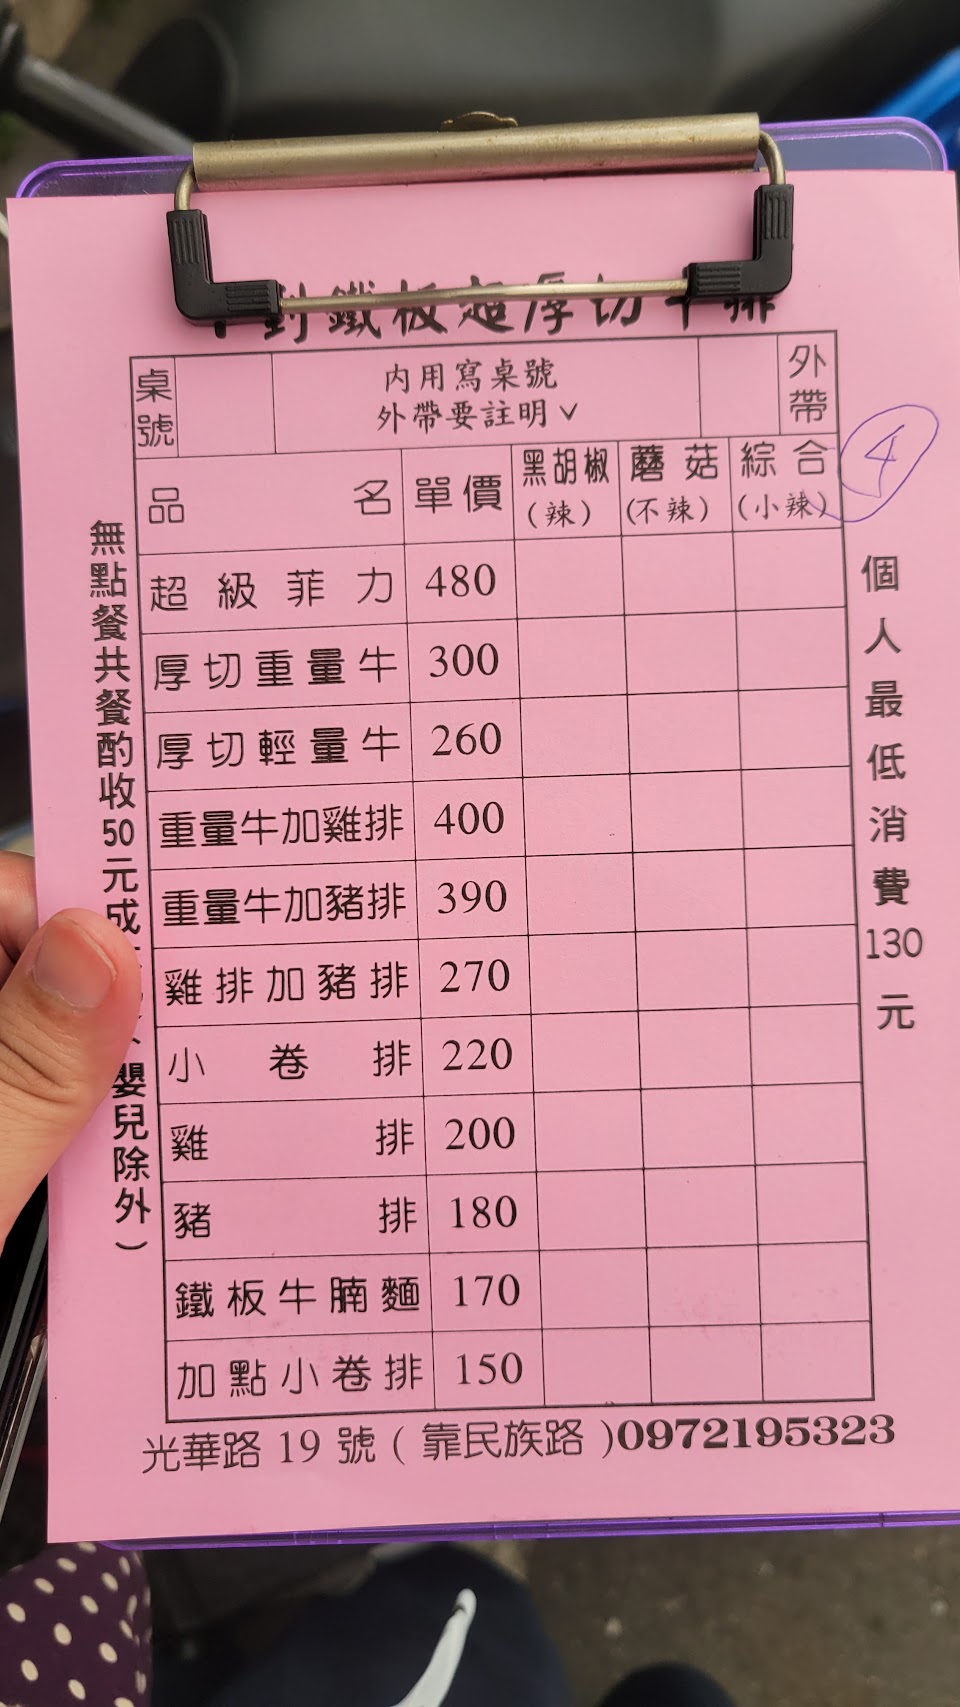 到鐵板超厚切牛排
桌號
內用寫桌號
外帶要註明∨
外帶
④
品名 單價 黑胡椒(辣) 蘑菇(不辣) 綜合(小辣)
超級菲力 480
厚切重量牛 300
厚切輕量牛 260
重量牛加雞排 400
重量牛加豬排 390
雞排加豬排 270
小卷排 220
雞排 200
豬排 180
鐵板牛腩麵 170
加點小卷排 150
無點餐共餐酌收50元成 嬰兒除外）
個人最低消費130元
光華路19號(靠民族路)0972195323